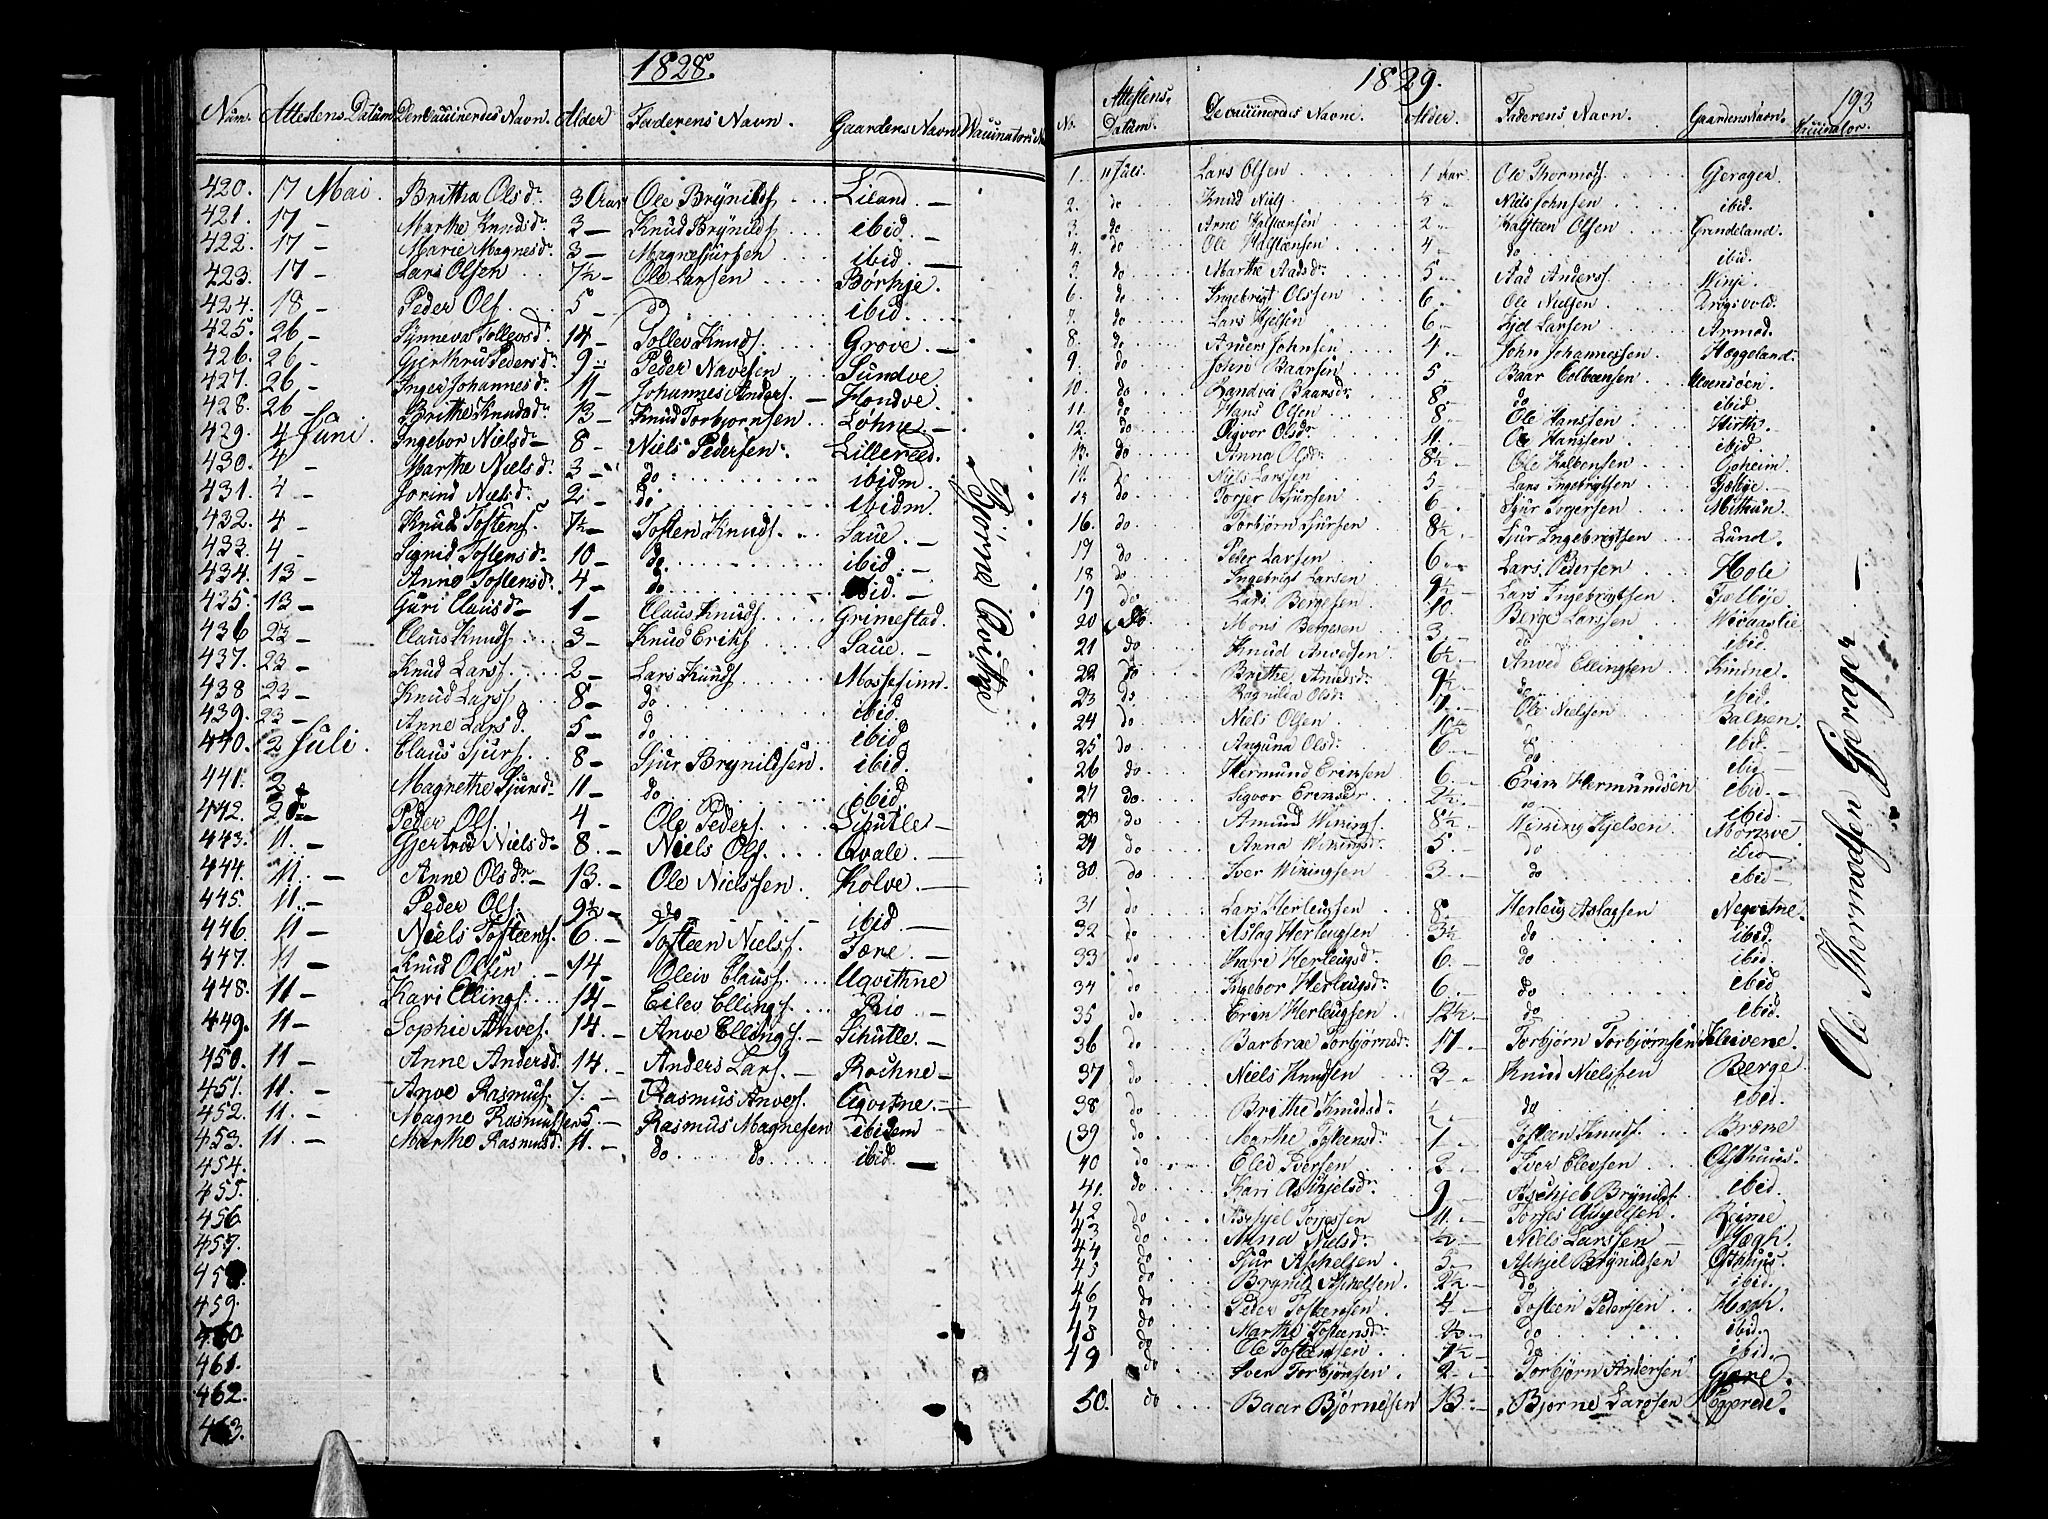 1828.
Num. Attestens Datum. Den Vaccineredes Navn. Alder Faderens Navn. Gaardens Navn. Vaccinators
420. 17 Mai. Brithа Olsd. 3 Aar Ole Brÿnildf Liland. —
421. 17 — Marthe Knudsdr 2 — Knud Brÿnildf ibid. —
422. 17 — Marie Magnesdr 3 — Magne Sjursen ibid. —
423. 17 — Lars Olsen 7½ — Ole Larsen Børhje.
424. 18 — Peder Olf. 5 — do ibid.
425. 26 — Sÿnneva Tollevsdr 14 — Tollev Knudf. Grove. —
426. 26 — Gjerthru Pedersdr 9 — Peder Navesen Sundve.
427. 26 — Inger Johannesdr 11 — Johannes Andersf. — Hondve.
428. 26 — Brithe Knudsdr 13 — Knud Torbjornsen Løhne. —
429. 4 Juni. Ingebor Nielsd — 8 — Niels Pedersen. Lillereed.
430. 4 — Marthe Nielsd. 3 — do ibidm.
431. 4 — Jorind Nielsdr 2 — do ibidm.
432. 4 — Knud Tostensf. 7½ — Tosten Knudf. Saue. —
433. 4 — Sigrid Tostensdr 10 — do ibid. —
434. 13 — Anno Tostensd. 4 — do ibid. —
435. 13 — Guri Clausd. — 1 — Claus Knudf. Grimestad.
436 23 — Claus Knudf. 3 — Knud Erikf. Saue. —
437. 23 — Knud Larsf. 2 — Lars Knudf Mossefinn.
438 23 — Knud Larsf 8 — do ibid.
439. 23 — Anne Larsd. 5 — do ibid.
440. 2 Juli. Claus Sjursf. 8 — Sjur Brynildsen. ibid.
441. 2 Magrethe Sjursd. 11 — do ibid.
442. 2 Peder Olf. 4 — Ole Pedersf. Schutle —
443. 11. — Gjertrud Nielsd. 8. — Niels Olf. Qvale. —
444. 11. — Anne Olsdr — 13. — Ole Nielssen. Kolve. —
445. 11. — Peder Olf. 9½ — do ibid. —
446. 11 — Niels Tosteensf. 6. — Tosteen Nielsf. Tære. —
447. 11 — Knud Olsen — 14 — Oleiv Clausf. Ugvithne
448. 11 — Kari Ellingf. 14 — Eilev Ellingf. Rio. —
449. 11 — Sophie Anvef. 14. — Anve Ellingf. — Schutle. —
450. 11 — Anne Andersd. 14. — Anders Larsf. — Rochne —
451. 11. — Anve Rasmusf. 7. — Rasmus Anvesf. Ugvitne. —
452. 11. — Magne Rasmussen 5. — Rasmus Magnesen ibidem
453. 11. — Marthe Rasmusd. 11. — do do ibid. —
454.
455.
456.
457.
458
459.
460.
461.
462.
463.
Bjørne Qvitne
1829.
193
No. Attestens Datum. De Vaccineredes Navne. Alder. Faderens Navn. Gaardens Navn. Vaccinator.
1. 11 Juli. Lars Olsen 1 Aar. Ole Thormodf. Gjerager.
2. do Knud Nielf Niels Johnsen ibid.
3. do Arne Halsteensen 2 — Halsteen Olsen Grandeland.
4. do Ole Halsteensen 4 — do ibid.
5. do Marthe Aadsdr. 5 — Aad Andersf. Winje.
6. do Ingebrigt Olssen 6. Ole Nielsen Drogsvold.
7. do Lars Kjelsen 6. Kjel Larsen Armod.
8. do Anders Johnsen 4 John Johannessen. Heggeland.
9. do John Baarsen 5 Baar Colbensen
10. do Randvei Baarsdr 8. do ibid
11. do Hans Olsen 8 Ole Hanssen Hirth.
12. do Sigvor Olsdr 11. Ole Hanssen ibid.
13. do Anna Olsdr 8½ Ole Kolbensen Goheim.
14. do Niels Larssen 5 Lars Ingebrigtsen
15 do Torjer Sjursen 6. Sjur Torgersen Mithun.
16. do Torbjørn Sjursen 8½ Sjur Ingebrigtsen Lund.
17 do Peder Larsen 6. Lars Pedersen Hole
18 do Ingebrigt Larsen 9½ Lars Ingebrigtsen
19 do Lars Bergesen 10. Berge Larssen
20 do Mons Bergesen 3. do ibid.
21 do Knud Anvedsen 6½ Anved Ellingsen Kinne.
22 do Brithe Anvedsdr 9½ do ibid.
23 do Ragnilda Olsdr. 7. Ole Nielssen Balken.
24 do Niels Olsen 10½ do ibid.
25 do Anguna Olsd. 6. do ibid —
26 do Hermund Ericsen 6. Eric Hermundsen ibid. —
27 do Sigvor Ericsdr 2½ do ibid. —
28 do Amund Wikingf 8½ Wiking Kjelsen. Mørkve.
29 do Anna Wikingsd. 5 do ibid —
30. do Iver Wikingsen 3. do ibid —
31 do Lars Herleugsen 8. Herleug Aslagsen Neqvitne.
32 do Aslag Herleugsen 3½ do ibid.
33 do Kari Herleugsd. 6. do ibid.
34 do Ingebor Herleugsd. 6 do ibid
35 do Eric Herleugsen 12½ do ibid.
36 do Barbrae Torbjørnsd. 17 Torbjørn Torbjørnsen Kleivene.
37 do Niels Knudsen 3 Knud Nielssen Berge
38 do Brithe Knudsd. ½ do ibid.
39 do Marthe Tosteensd. 1 Tosteen Knudf. Bræne
40 do Eled Iversen 2 — Iver Elevsen Osthuus.
41. do Kari Aschjelsdr 9 — Aschjel Brÿnildf. ibid.
42 do Aschjel Torjessen 11. — Torjes Rime
43 do Anna Nielsd. ½ — Niels Larssen — Høgh.
44 do Sjur Aschelsen 5 — Aschjel Brÿnildsen Osthuus.
45 do Brynild Aschelsen. 2½ — do ibid.
46 do Peder Tosteensen. 4 — Tosteen Pedersen Høgh.
47 do Marthe Tosteensd. do ibid.
48 do Ole Tosteensen. 1½ do ibid.
49 do Sven Torbjønsen. 2 — Torbjørn Andersen Gjære.
50. do Baar Bjørnesen 13. — Bjørne Larssen
Ole Thormodsen Gjerager —